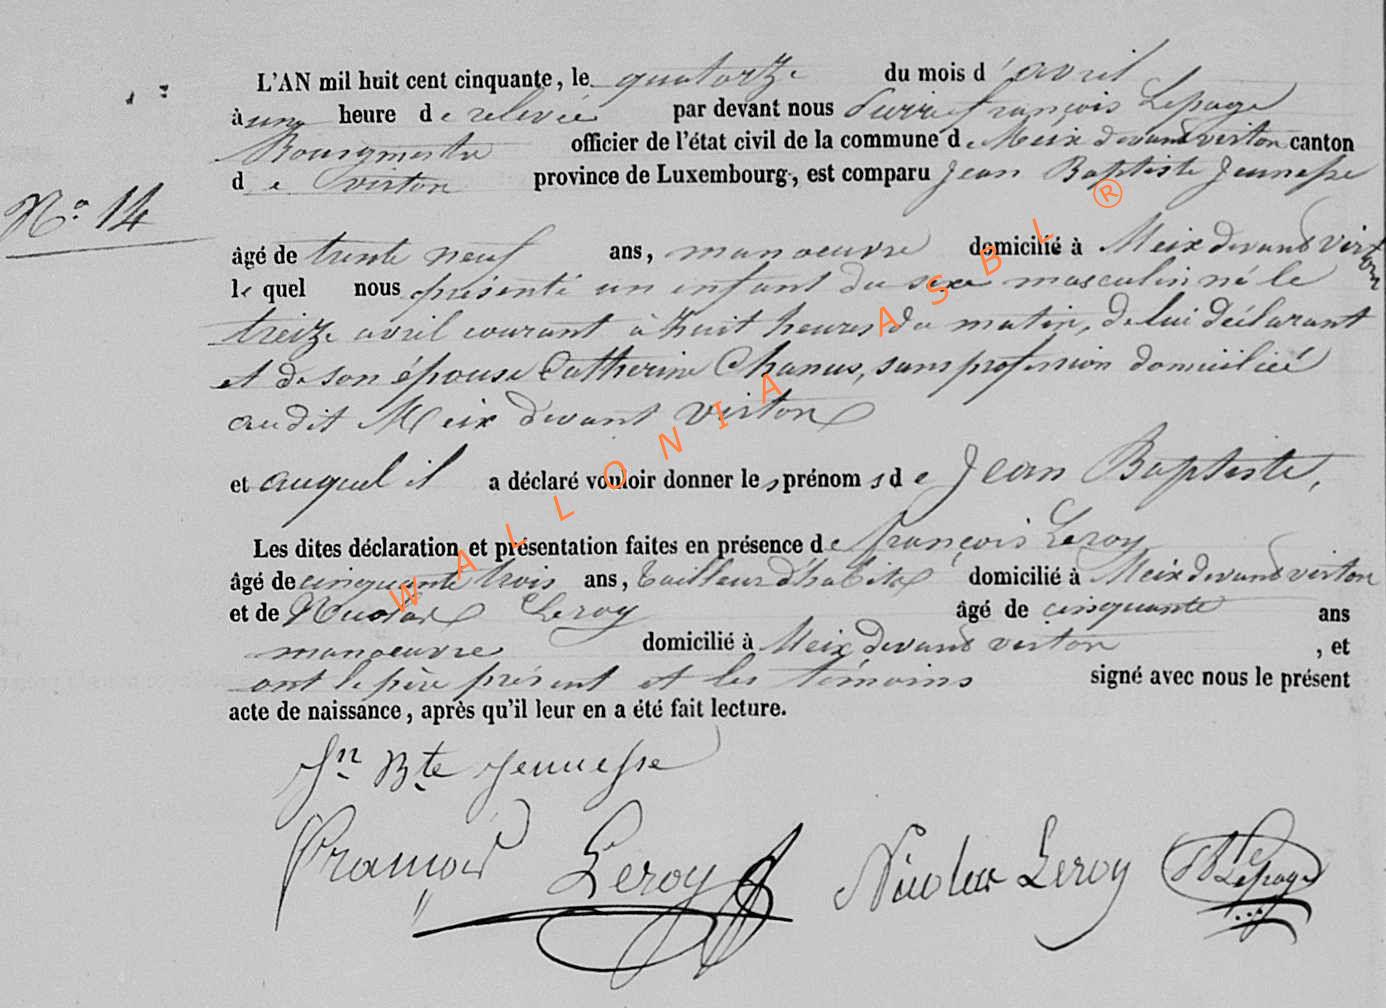 L'AN mil huit cent cinquante, le quatorze du mois d'avril
à une heure de relevée par devant nous Pierre françois Lepage
Bourgmestre officier de l'état civil de la commune de Meix devant virton canton
de virton province de Luxembourg, est comparu Jean Baptiste Jeunesse
No. 14
âgé de trente neuf ans, manoeuvre domicilié à Meix devant Virton
le quel nous présenté un enfant du sexe masculin né le
treize avril courant à huit heures du matin, de lui déclarant
et de son épouse Catherine Chanus, sans profession domiciliée
audit Meix devant virton
et auquel il a déclaré vouloir donner les prénoms de Jean Baptiste,
Les dites déclaration et présentation faites en présence de françois Leroy
âgé de cinquante trois ans, tailleur d'habits domicilié à Meix devant virton
et de Nicolas Leroy âgé de cinquante ans
manoeuvre domicilié à Meix devant virton, et
ont le père présent et les témoins signé avec nous le présent
acte de naissance, après qu'il leur en a été fait lecture.
Jn Bte Jeunesse
François Leroy Nicolas Leroy Lepage
WALLONIA ASBL ®